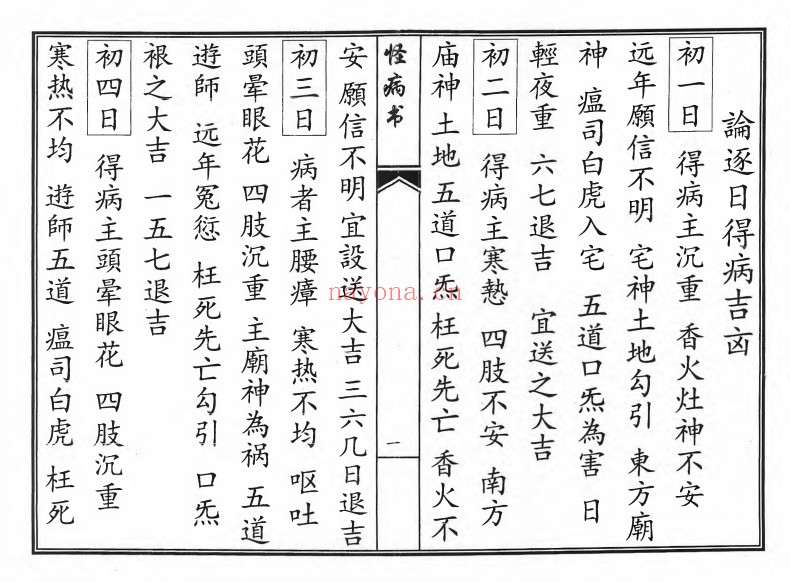 論逐日得病吉凶
初一日 得病主沉重 香火灶神不安
远年願信不明 宅神土地勾引 東方廟
神 瘟司白虎入宅 五道口炁為害 日
輕夜重 六七退吉 宜送之大吉
初二日 得病主寒熱 四肢不安 南方
庙神 土地 五道口炁 枉死先亡 香火不
怪病书
一
安 願信不明 宜設送大吉 三六九日退吉
初三日 病者主腰瘴 寒热不均 呕吐
頭晕眼花 四肢沉重 主廟神為祸 五道
遊師 远年冤愆 枉死先亡勾引 口炁
裉之大吉 一五七退吉
初四日 得病主頭晕眼花 四肢沉重
寒热不均 遊師五道 瘟司白虎 枉死
nayona.cn